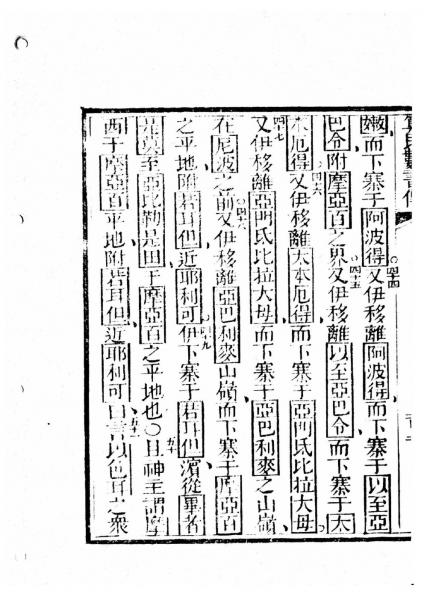 嫩而下寨于阿波得四十四又伊移離阿波得而下寨于以至亞
巴令附摩亞百之界四十五又伊移離以至亞巴令而下寨于太
本厄得四十六又伊移離太本厄得而下寨于亞門氐比拉大母
四十七又伊移離亞門氐比拉大母而下寨于亞巴利麥之山嶺
在尼波之前四十八又伊移離亞巴利麥山嶺而下寨于摩亞百
之平地附若耳但近耶利可四十九伊下寨于若耳但濱從畢者
是莫至亞比勒是田于摩亞百之平地也〇五十且神主謂摩
西于摩亞百平地附若耳但近耶利可曰五十一言以色耳之衆